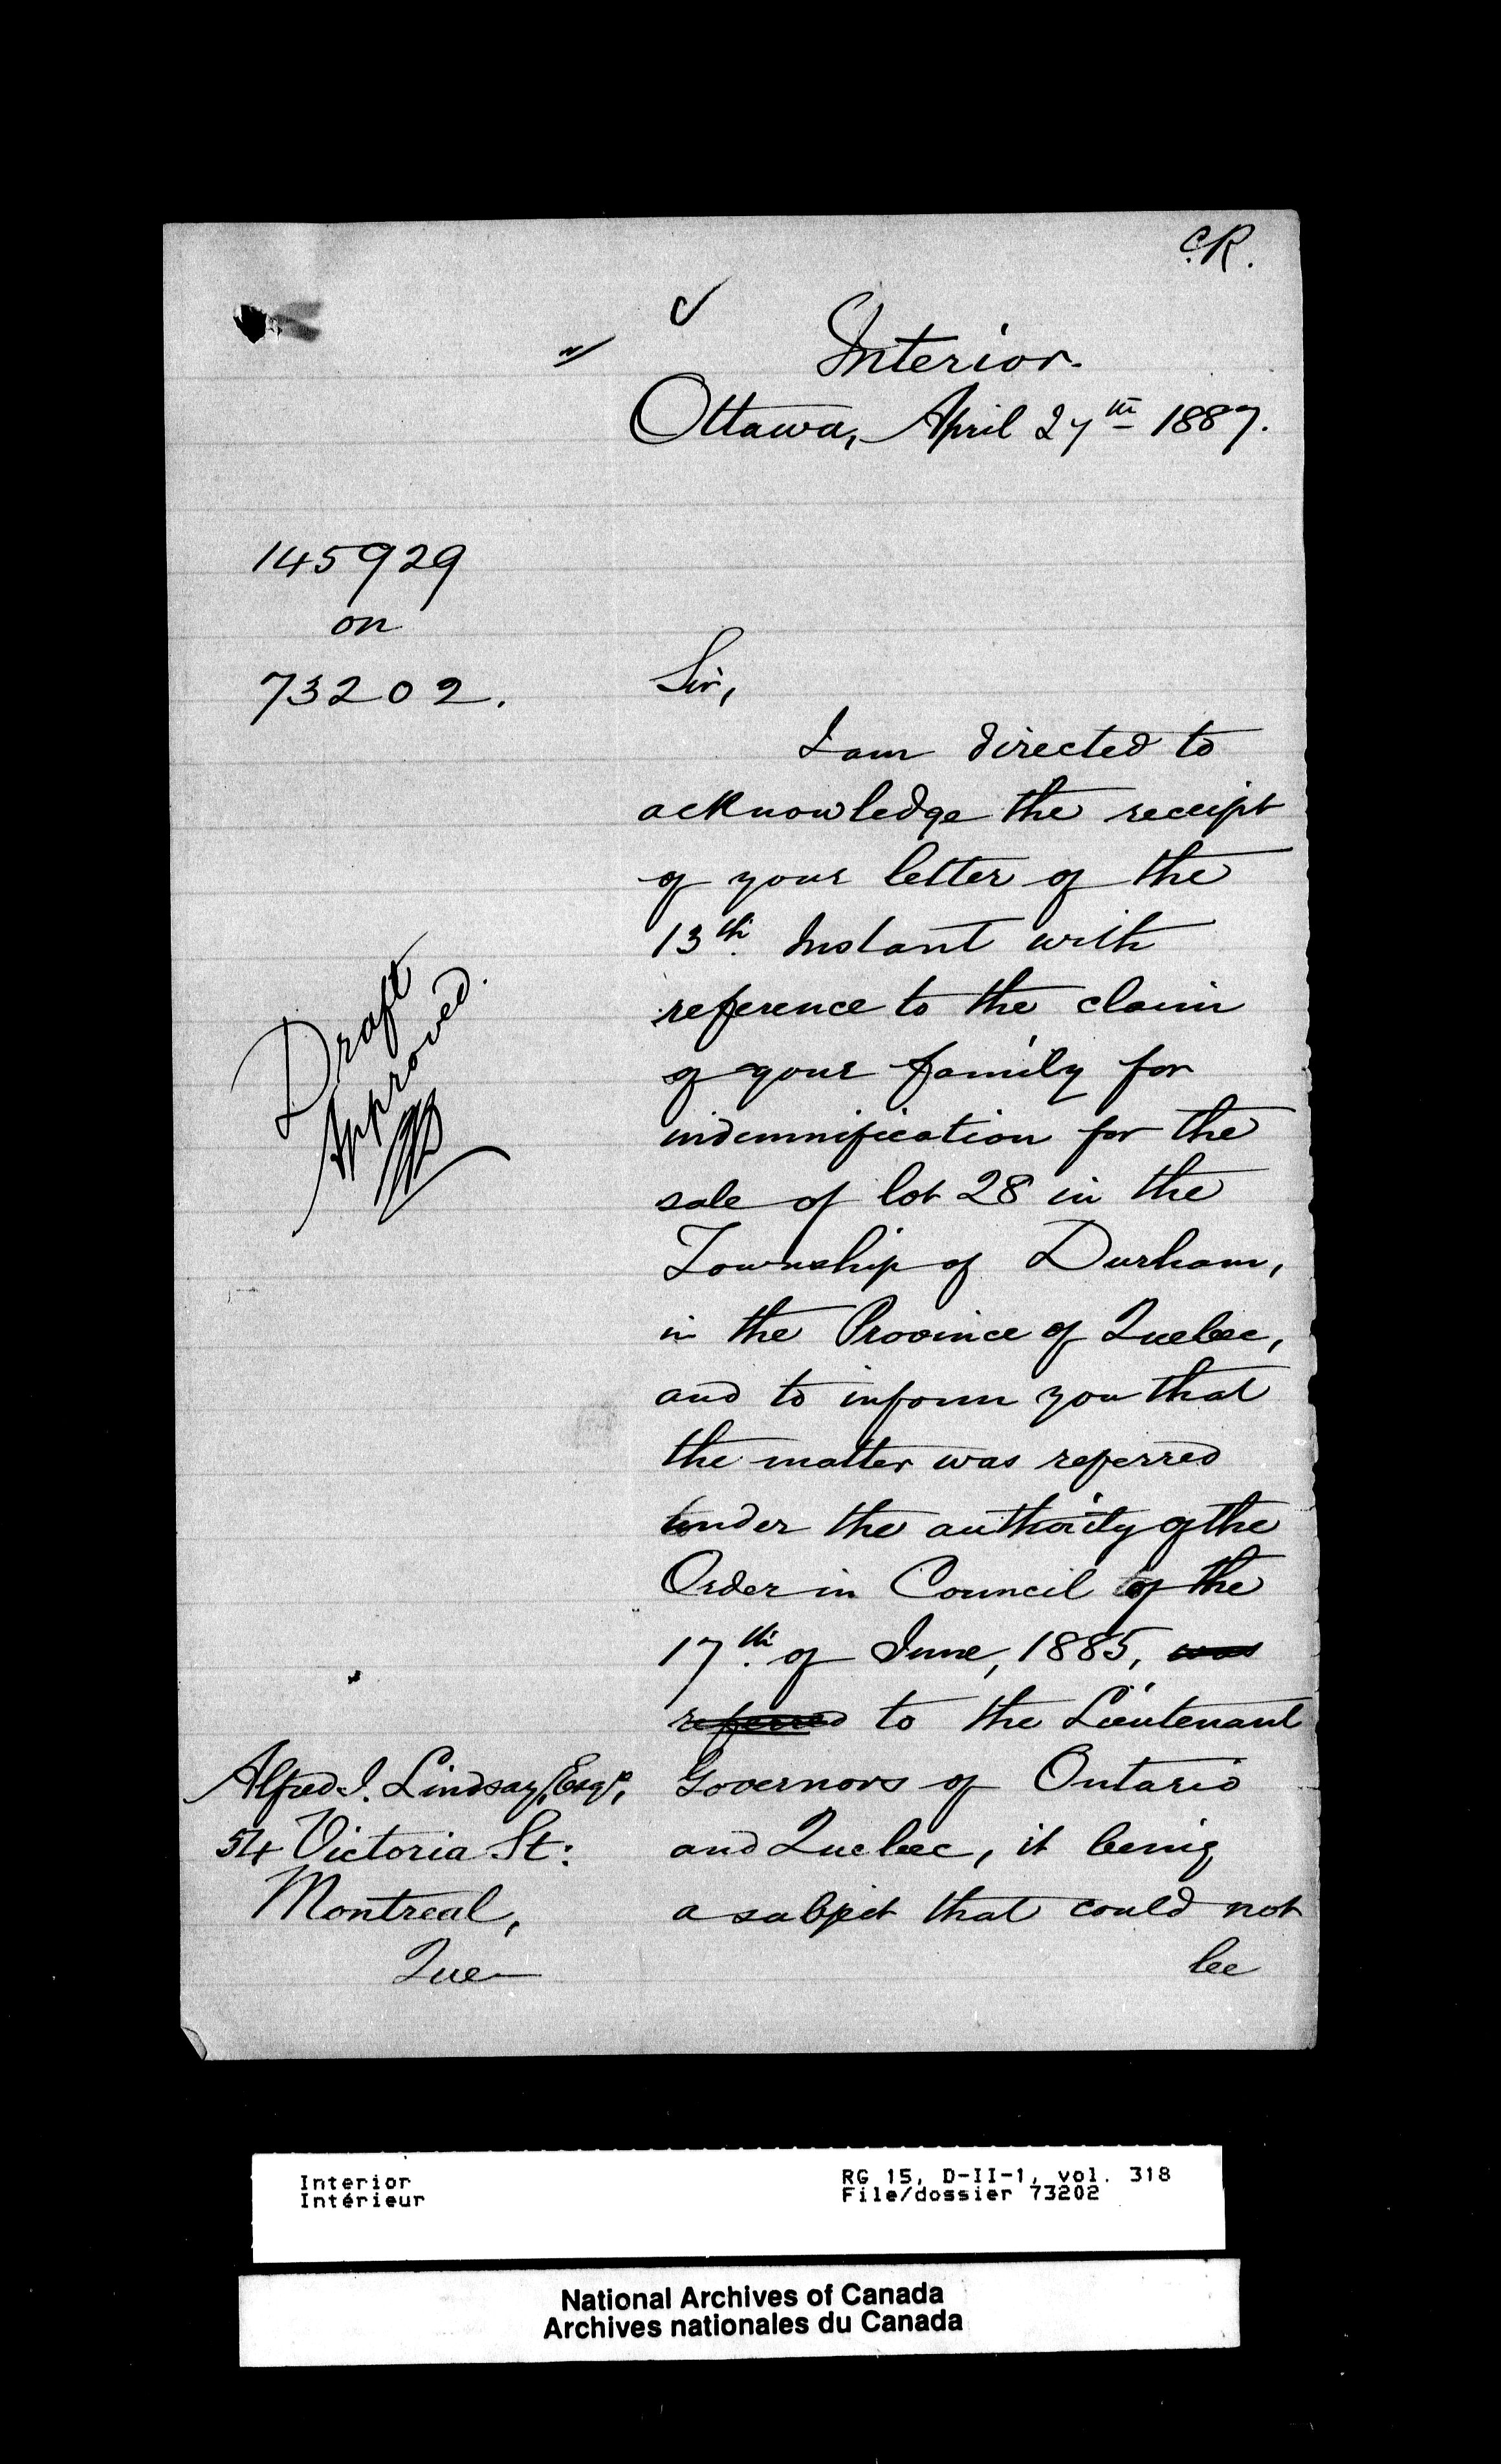 C.R.
Interior.
Ottawa, April 27th 1887.
145929
on
73202.
Sir,
I am directed to
acknowledge the receipt
of your letter of the
13th. Instant with
reference to the claim
of your family for
indemnification for the
sale of lot 28 in the
Township of Durham,
in the Province of Quebec,
and to inform you that
the matter was referred
under the authority of the
Order in Council of the
17th. of June, 1885, was
referred to the Lieutenant
Governors of Ontario
and Quebec, it being
a subject that could not
be
Draft
Approved.
Alfred I. Lindsay, Esqr,
54 Victoria St:
Montreal,
Que
Interior
Intérieur
RG 15, D-II-1, vol. 318
File/dossier 73202
National Archives of Canada
Archives nationales du Canada